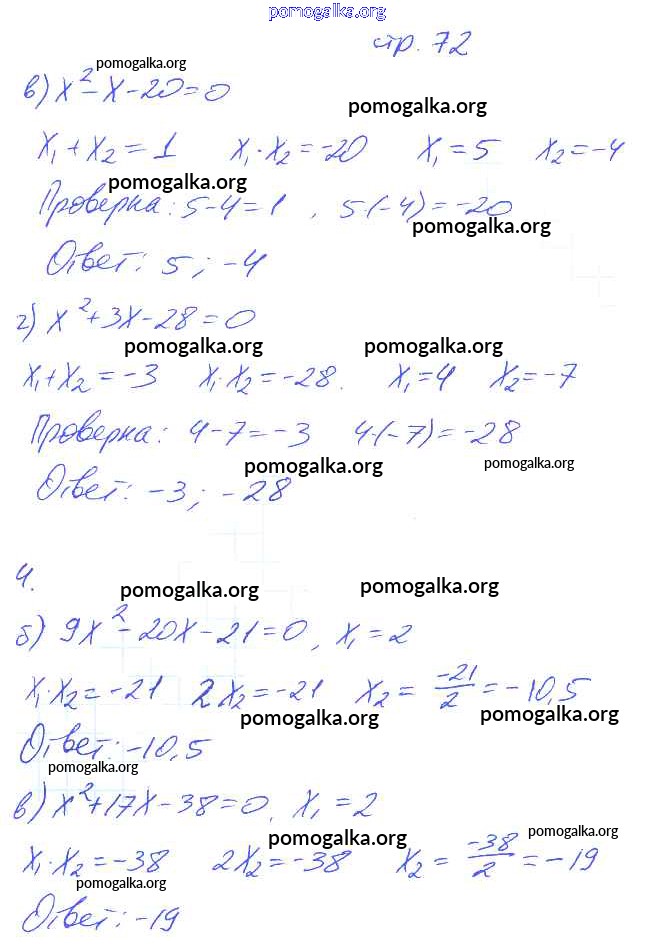 pomogalka.org
стр. 72
pomogalka.org
в) x² - x - 20 = 0
pomogalka.org
x₁ + x₂ = 1 x₁ · x₂ = -20 x₁ = 5 x₂ = -4
pomogalka.org
Проверка: 5 - 4 = 1 , 5·(-4) = -20
pomogalka.org
Ответ: 5 ; -4
г) x² + 3x - 28 = 0
pomogalka.org pomogalka.org
x₁ + x₂ = -3 x₁ · x₂ = -28. x₁ = 4 x₂ = -7
Проверка: 4 - 7 = -3 4·(-7) = -28
pomogalka.org pomogalka.org
Ответ: -3 ; -28
4.
pomogalka.org pomogalka.org
б) 9x² - 20x - 21 = 0 , x₁ = 2
x₁ · x₂ = -21 2x₂ = -21 x₂ = -21/2 = -10,5
pomogalka.org pomogalka.org
Ответ: -10,5
pomogalka.org
в) x² + 17x - 38 = 0, x₁ = 2
pomogalka.org pomogalka.org
x₁ · x₂ = -38 2x₂ = -38 x₂ = -38/2 = -19
pomogalka.org
Ответ: -19